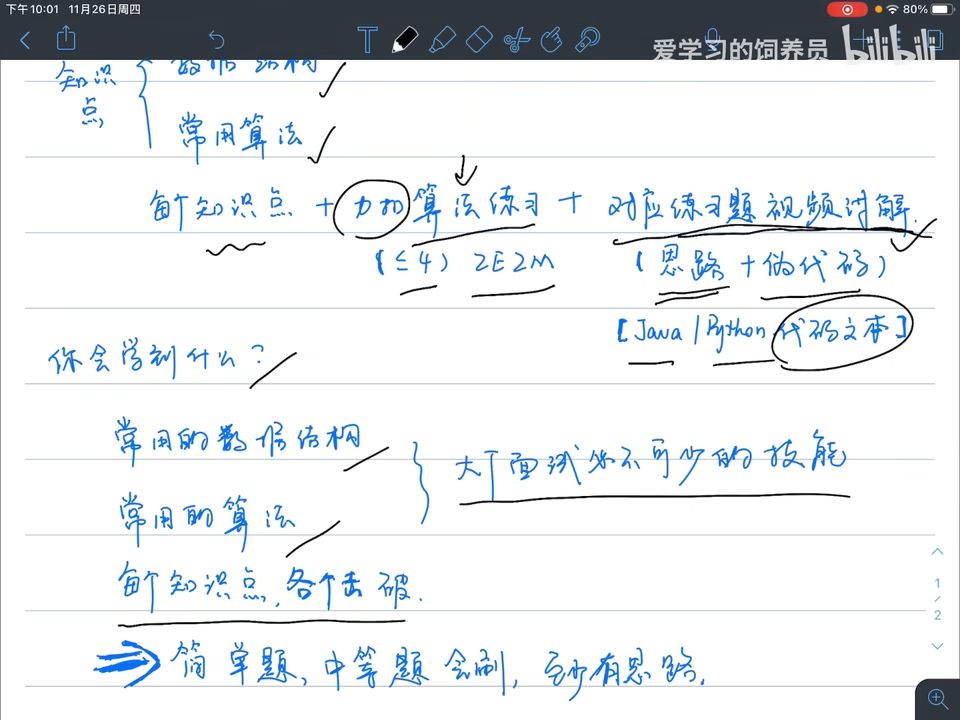 下午10:01 11月26日周四
80%
爱学习的饲养员 bilibili
知识点 数据结构
常用算法
每个知识点 + 力扣算法练习 + 对应练习题视频讲解.
(≤4) 2E2M (思路+伪代码)
[Java / Python 代码文本]
你会学到什么?
常用的数据结构
大厂面试必不可少的技能
常用的算法
每个知识点,各个击破.
简单题,中等题会刷,至少有思路.
1/2